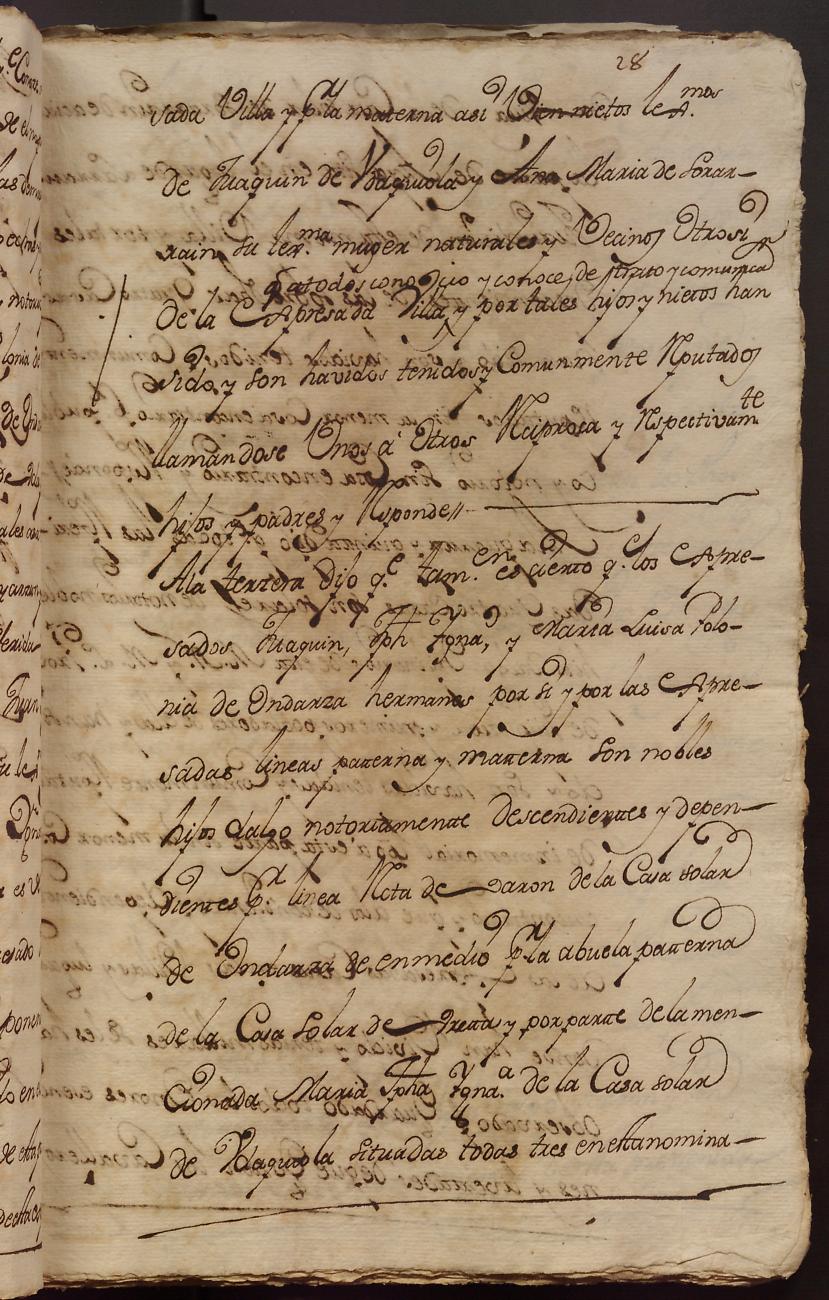 28
sada Villa y pr. la materna asi Vien nietos lexmos.
de Juaquin de Ydaquiola y Ana Maria de Lorar-
rain su lex.ma muger naturales y Vecinos Otrosi
q.e a todos conocio y conoce, de trato y comunica
de la Expresada Villa, y por tales hijos y nietos han
sido, y son havidos tenidos y Comunmente Reputados
llamandose Unos á Otros Reciproca y Respectivam.te
hijos y padres y Responde //
A la terzera Dijo q.e tam.en es cierto q.e los Expre-
sados Juaquin, Jph Ygna, y Maria Luisa Polo-
nia de Undarza hermanos por si y por las Expre-
sadas lineas paterna y materna son nobles
hijos dalgo notoriamente Descendientes y depen-
dientes pr. linea Recta de Varon de la Casa solar
de Undarza de enmedio pr. la abuela paterna
de la Casa solar de y por parte de la men-
cionada Maria Jpha Ygna.a de la Casa solar
de Ydaquiola situadas todas tres en esta nomina-